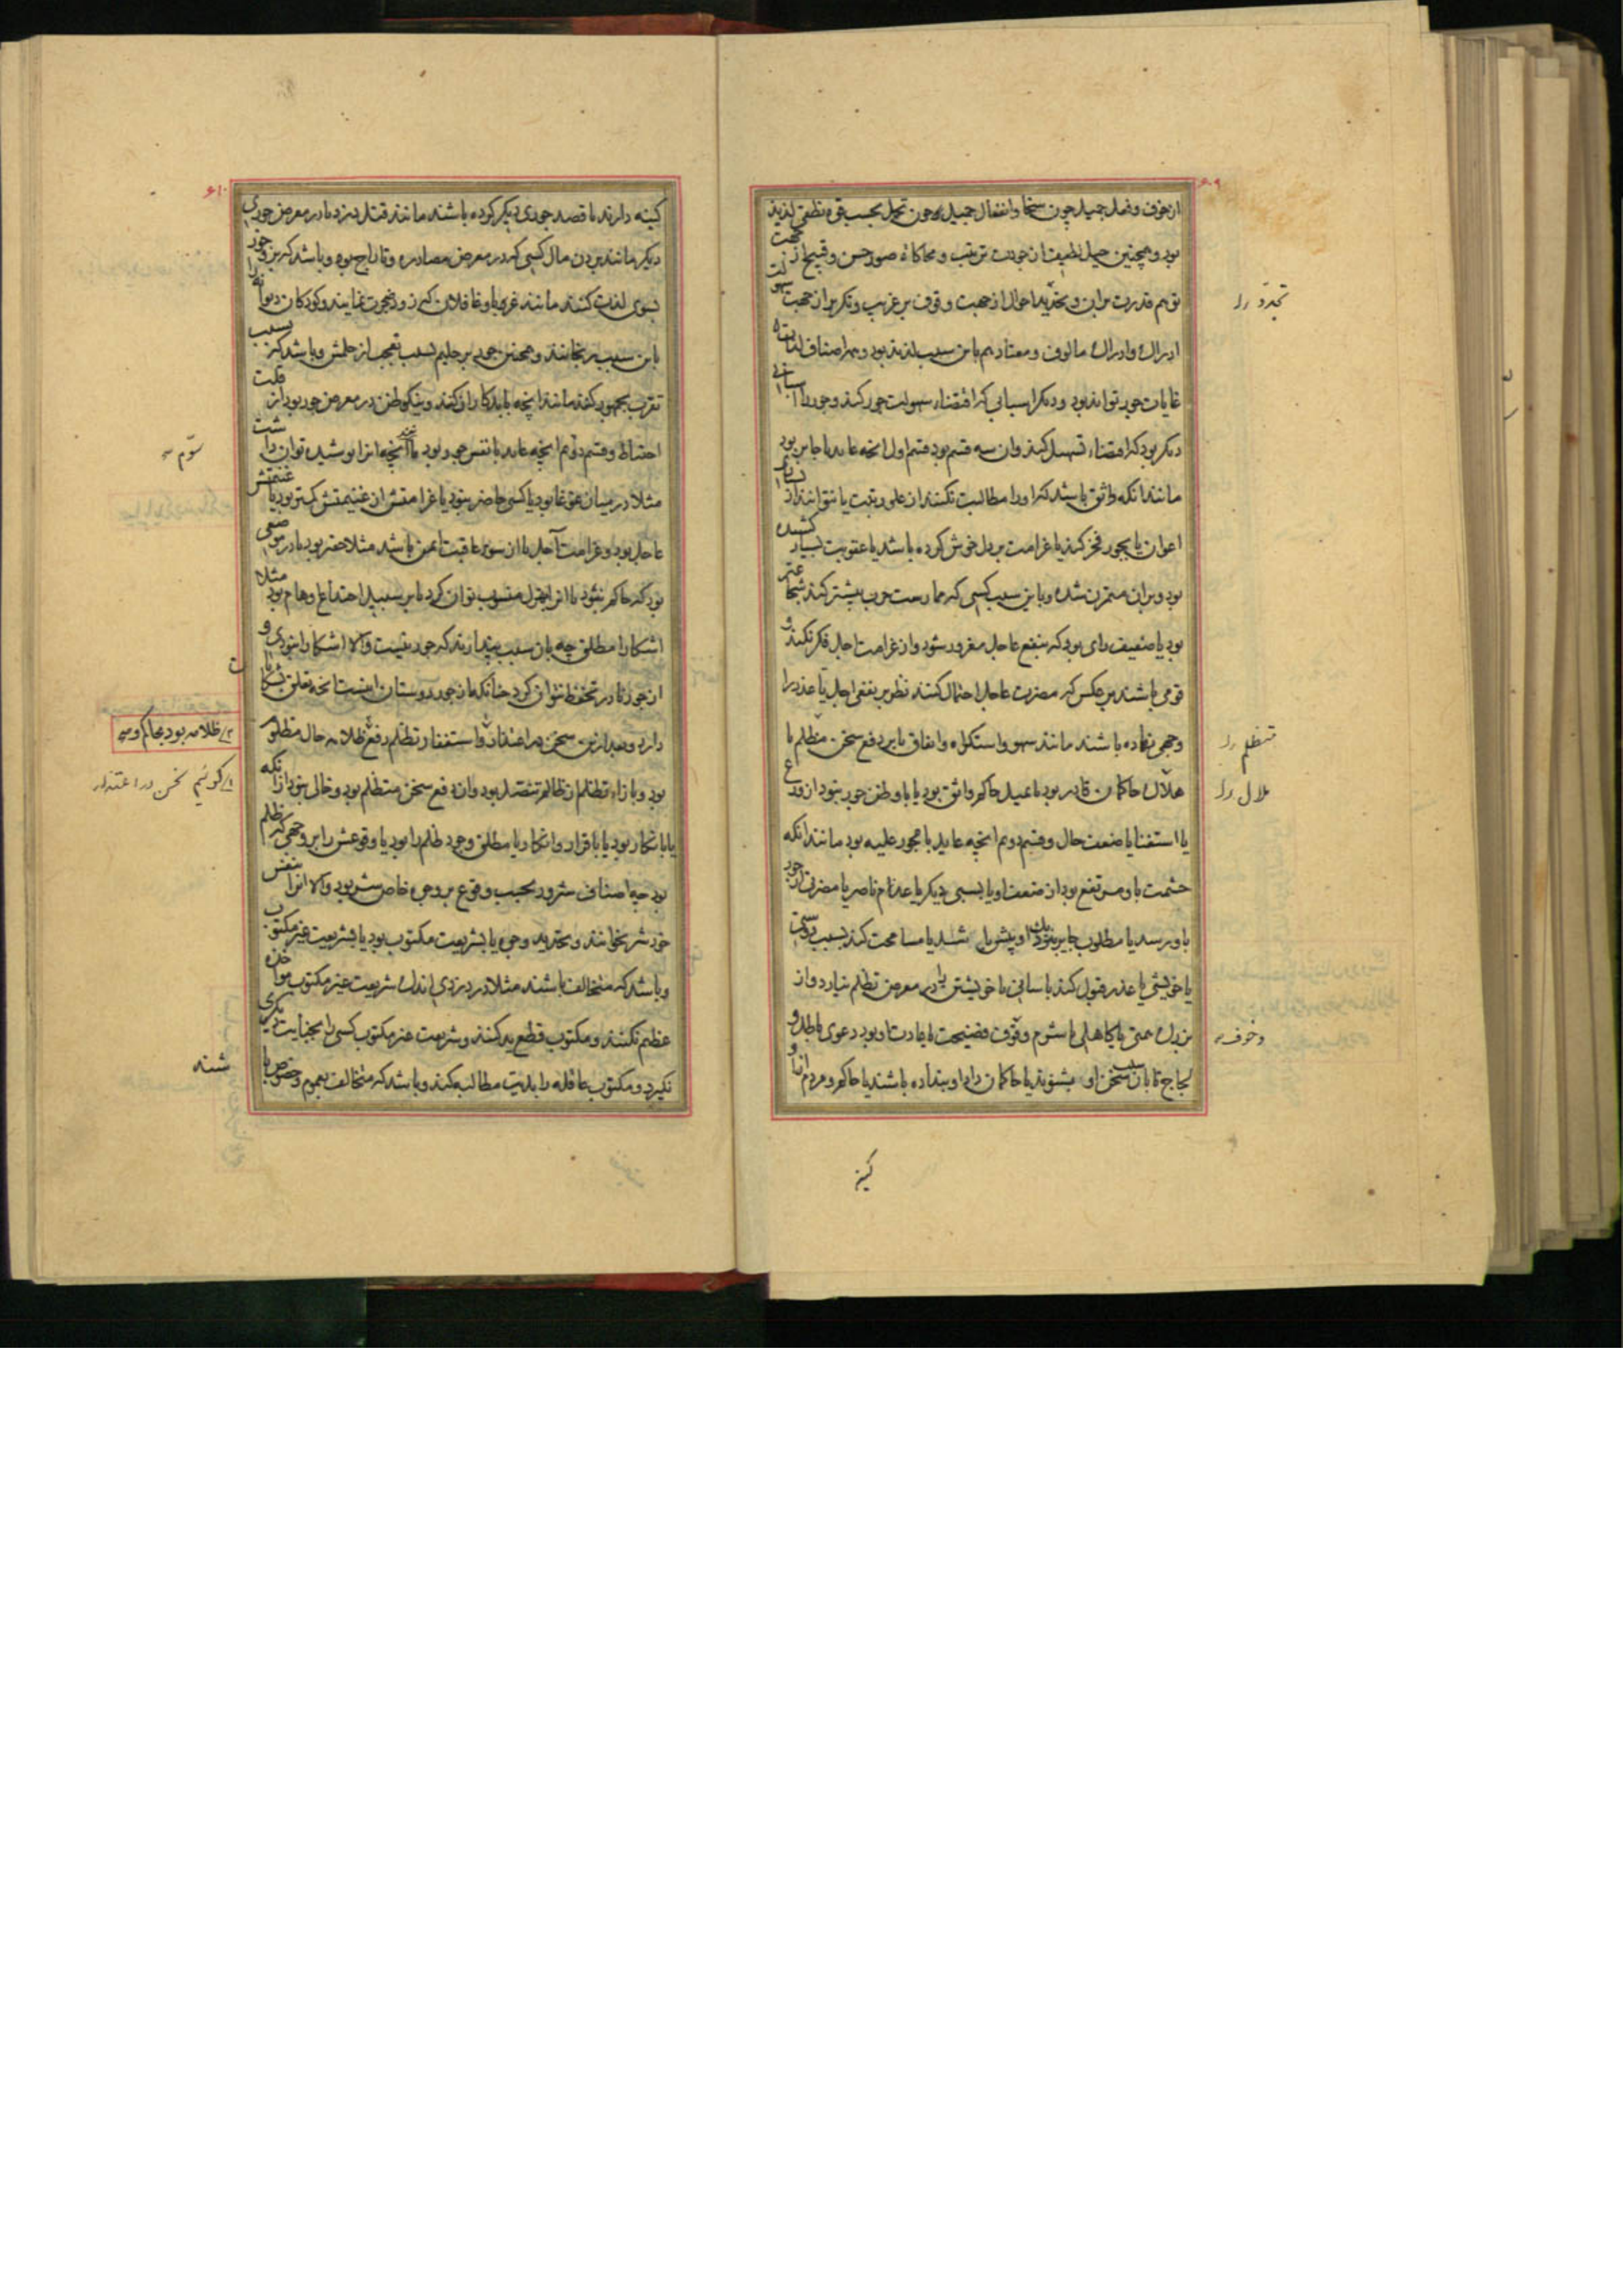 ۶۰۹
از خوف و فعل جمیل چون سخا و انفعال جمیل چون تحمل بحسب قوه نطقی لذیذ
بود و همچنین حیل لطیف از جودت ترتیب و محاکاة صور حسن و قبیح از جهت
توهم قدرت بران و تجدید احوال از جهت وقوف بر غریب و تکریر از جهت سهولت
ادراک و ادراک مالوف و معتاد هم باین سبب لذیذ بود و همه اصناف لذات
غایات جور تواند بود و دیگر اسبابی که اقتضاء سهولت جور کند و جور را اسبابی
دیگر بود که اقتضاء تسهیل کند و ان سه قسم بود قسم اول انچه عاید با جایر بود
مانند انکه واثق باشد که او را مطالبت نکنند از علو رتبت یا نتوانند از بسیاری
اعوان یا بجور فخر کند یا غرامت بر دل خوش کرده باشد یا عقوبت بسیار کشیده
بود و بران متمرن شده و باین سبب کسی که ممارست حرب بیشتر کند شجاع‌تر
بود یا ضعیف رای بود که بنفع عاجل مغرور شود و از غرامت اجل فکر نکند و
قومی باشند بر عکس که مضرت عاجل احتمال کنند نظر بر نفع اجل یا عذر را
وجهی نهاده باشند مانند سهو و استکراه و اتفاق یا بر دفع سخن متظلم یا
هلال حاکمان قادر بود یا بمیل حاکم واثق بود یا با وطن جور نبود از
یا استغنا یا ضعف حال و قسم دوم انچه عاید با مجور علیه بود مانند انکه
حشمت با و مرتفع بود از ضعف او یا بسببی دیگر یا عدم ناصر یا مضرتی از جور
باو نرسد یا مطلوب جایر بنزدیک او پیش باشد یا مسامحت کند بسبب دوستی
یا خویشی یا عذر قبول کند باسانی یا خویشتن را در معرض تظلم نیارد و از
بزرک همتی یا کاهلی یا شرم وقوف فضیحت یا عادت او بود دعوی باطل و
لجاج تا بان سبب سخن او نشنوند یا حاکمان داد او بنداده باشند یا حاکم و مردم ازو
تجدد را
متظلم را
ملال را
و خوف
کینه
۶۱۰
کینه دارند یا قصد جوری دیگر کرده باشند مانند قتل دزد یا در معرض جوری
دیگر مانند بردن مال کسی که در معرض مصادره و تاراج بود و باشد که بر وجور
بسوی لذت کنند مانند غریبا و غافلان که زود حیرت نمایند و کودکان دیوانه را
باین سبب برنجانند و همچنین جور بر حلیم بسبب تعجب از حلمش و باشد که بسبب
تقرب بجمهور کنند مانند انچه با بدکاران کنند و نیکوظن در معرض جور بود از قلت
احتیاط و قسم دوم انچه عاید با نفس جور بود یا انچه انرا پوشیده توان داشت
مثلا در میان غوغا بود یا کسی حاضر نبود یا غرامتش از غنیمتش کمتر بود یا غنیمتش
عاجل بود و غرامت آجل یا از سوء عاقبت ایمن باشد مثلا حقیر بود یا در موضعی
بود که حاکم نشنود یا انرا بهزل منسوب توان کرد یا بر سبیل اختداع و هام بود مثلا
اشکارا مطلق چه بان سبب پندارند که جور نیست و الا اشکارا نبودی و یا
از جور نادر تحفظ نتوان کرد چنانکه از جور دوستان اینست انچه تعلق بشکایت
دارد و بعد ازین سخن در اعتذار و استغفار و تظلم رفع ظلامه حال مظلوم
بود و بازاء تظلم از ظالم تنصل بود و ان دفع سخن متظلم بود و خالی نبود از انکه
یا بانکار بود یا باقرار و انکار یا مطلق وجود ظلم را بود یا وقوعش را بر وجهی که ظلم
بود چه اصناف شرور بحسب وقوع بر وجهی خاص شر بود و الا انرا بنفس
خود شر نخوانند و تحدید وجه یا بشریعت مکتوب بود یا بشریعت غیر مکتوب
و باشد که متخالف باشند مثلا در دزدی اندک شریعت غیر مکتوب مواخذه
عظیم نکنند و مکتوب قطع ید کنند و شریعت غیر مکتوب کسی را بجنایت دیگری
نگیرد و مکتوب عاقله را بدیت مطالبه کند و باشد که متخالف بعموم و خصوص با
سوم
ظلامه بود بحاکم و
کوئیم سخن در اعتذار
شند